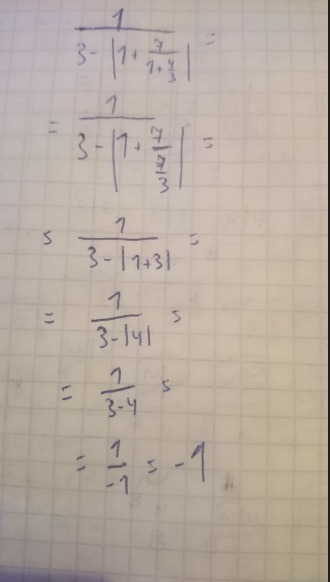 1/(3-|1+7/(1+4/3)|) =
= 1/(3-|1+7/(7/3)|) =
= 1/(3-|1+3|) =
= 1/(3-|4|) =
= 1/(3-4) =
= 1/-1 = -1